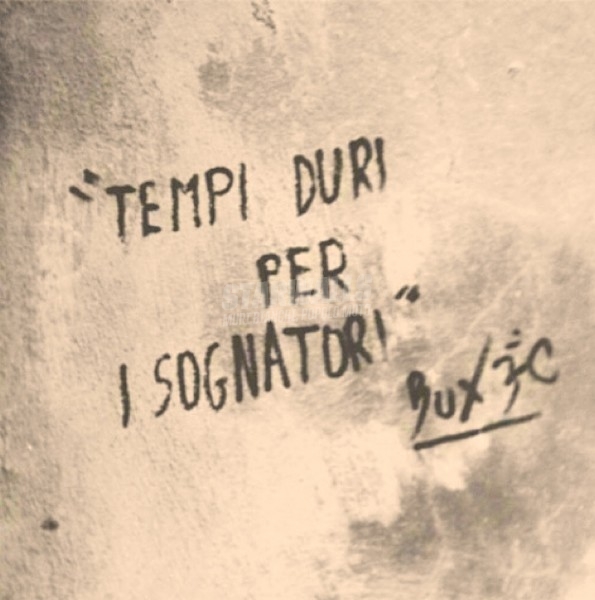 "TEMPI DURI
PER
I SOGNATORI"